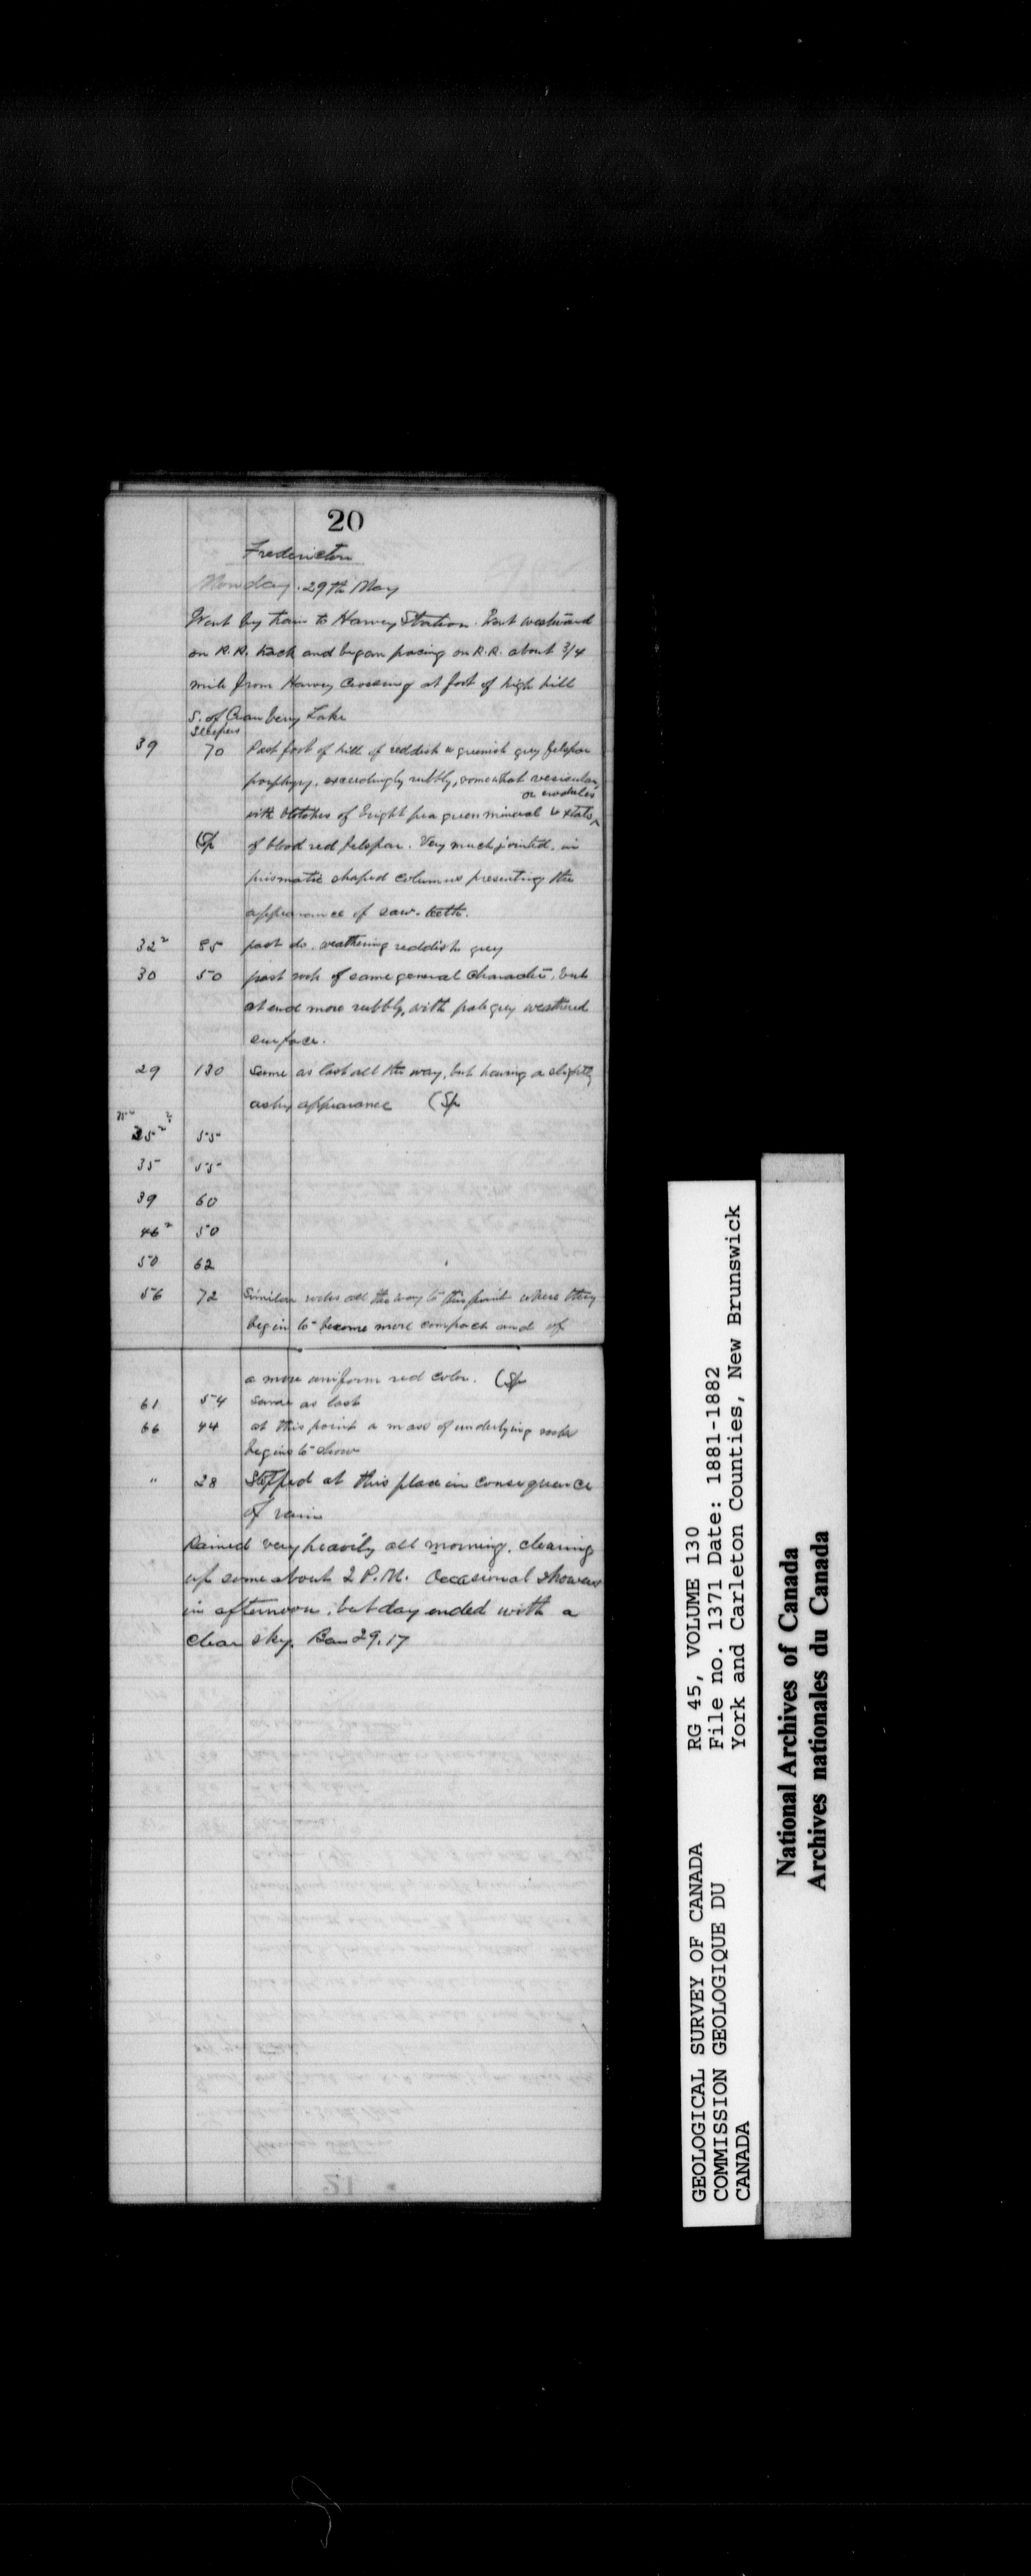 20
Fredericton
Monday. 29th May
Went by train to Harvey Station. Went westward
on R.R. track and began pacing on R.R. about 3/4
mile from Harvey Crossing at foot of high hill
S. of Cranberry Lake
Sleepers
39 70 Past foot of hill of reddish & greenish grey felspar
porphyry, exceedingly rubbly, somewhat vesicular,
or nodules
with blotches of bright pea green mineral & xtals ^
(Sp of blood red felspar. Very much jointed, in
prismatic shaped columns presenting the
appearance of saw-teeth.
32² 85 past do. weathering reddish grey
30 50 past rock of same general character, but
at end more rubbly, with pale grey weathered
surface.
29 130 Same as last all the way, but having a slightly
ashy appearance (Sp
35² 55
35 55
39 60
46² 50
50 62
56 72 Similar rocks all the way to this point where they
begin to become more compact and of
a more uniform red color. (Sp
61 54 Same as last
66 44 at this point a mass of underlying rocks
begins to show
" 28 Stopped at this place in consequence
of rain
Rained very heavily all morning, clearing
up some about 2 P.M. Occasional showers
in afternoon, but day ended with a
clear sky. Bar 29.17
21
GEOLOGICAL SURVEY OF CANADA
COMMISSION GEOLOGIQUE DU
CANADA
RG 45, VOLUME 130
File no. 1371 Date: 1881-1882
York and Carleton Counties, New Brunswick
National Archives of Canada
Archives nationales du Canada